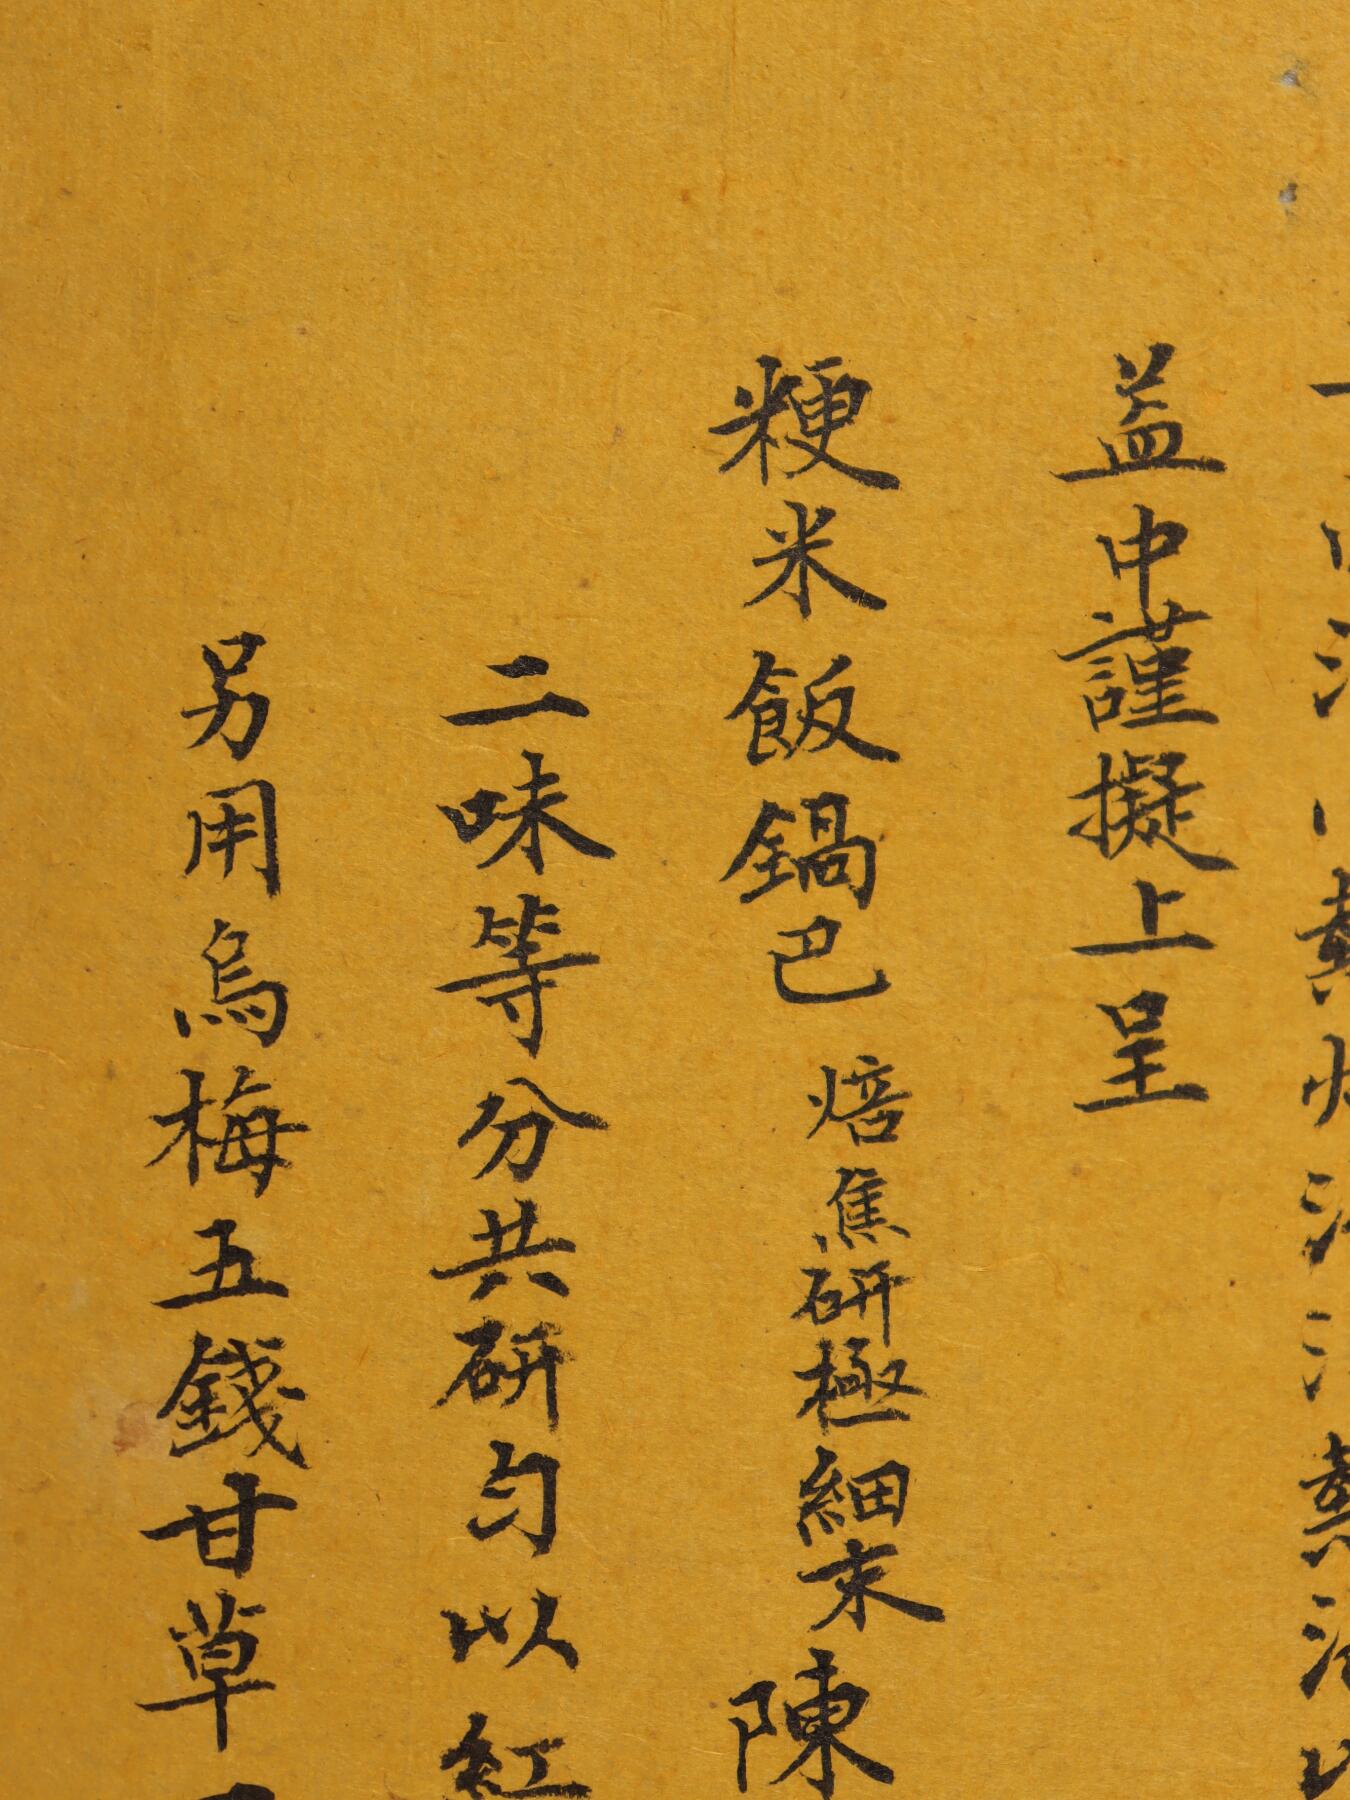 益中謹擬上呈
粳米飯鍋巴焙焦研極細末陳
二味等分共研勻以紅
另用烏梅五錢甘草